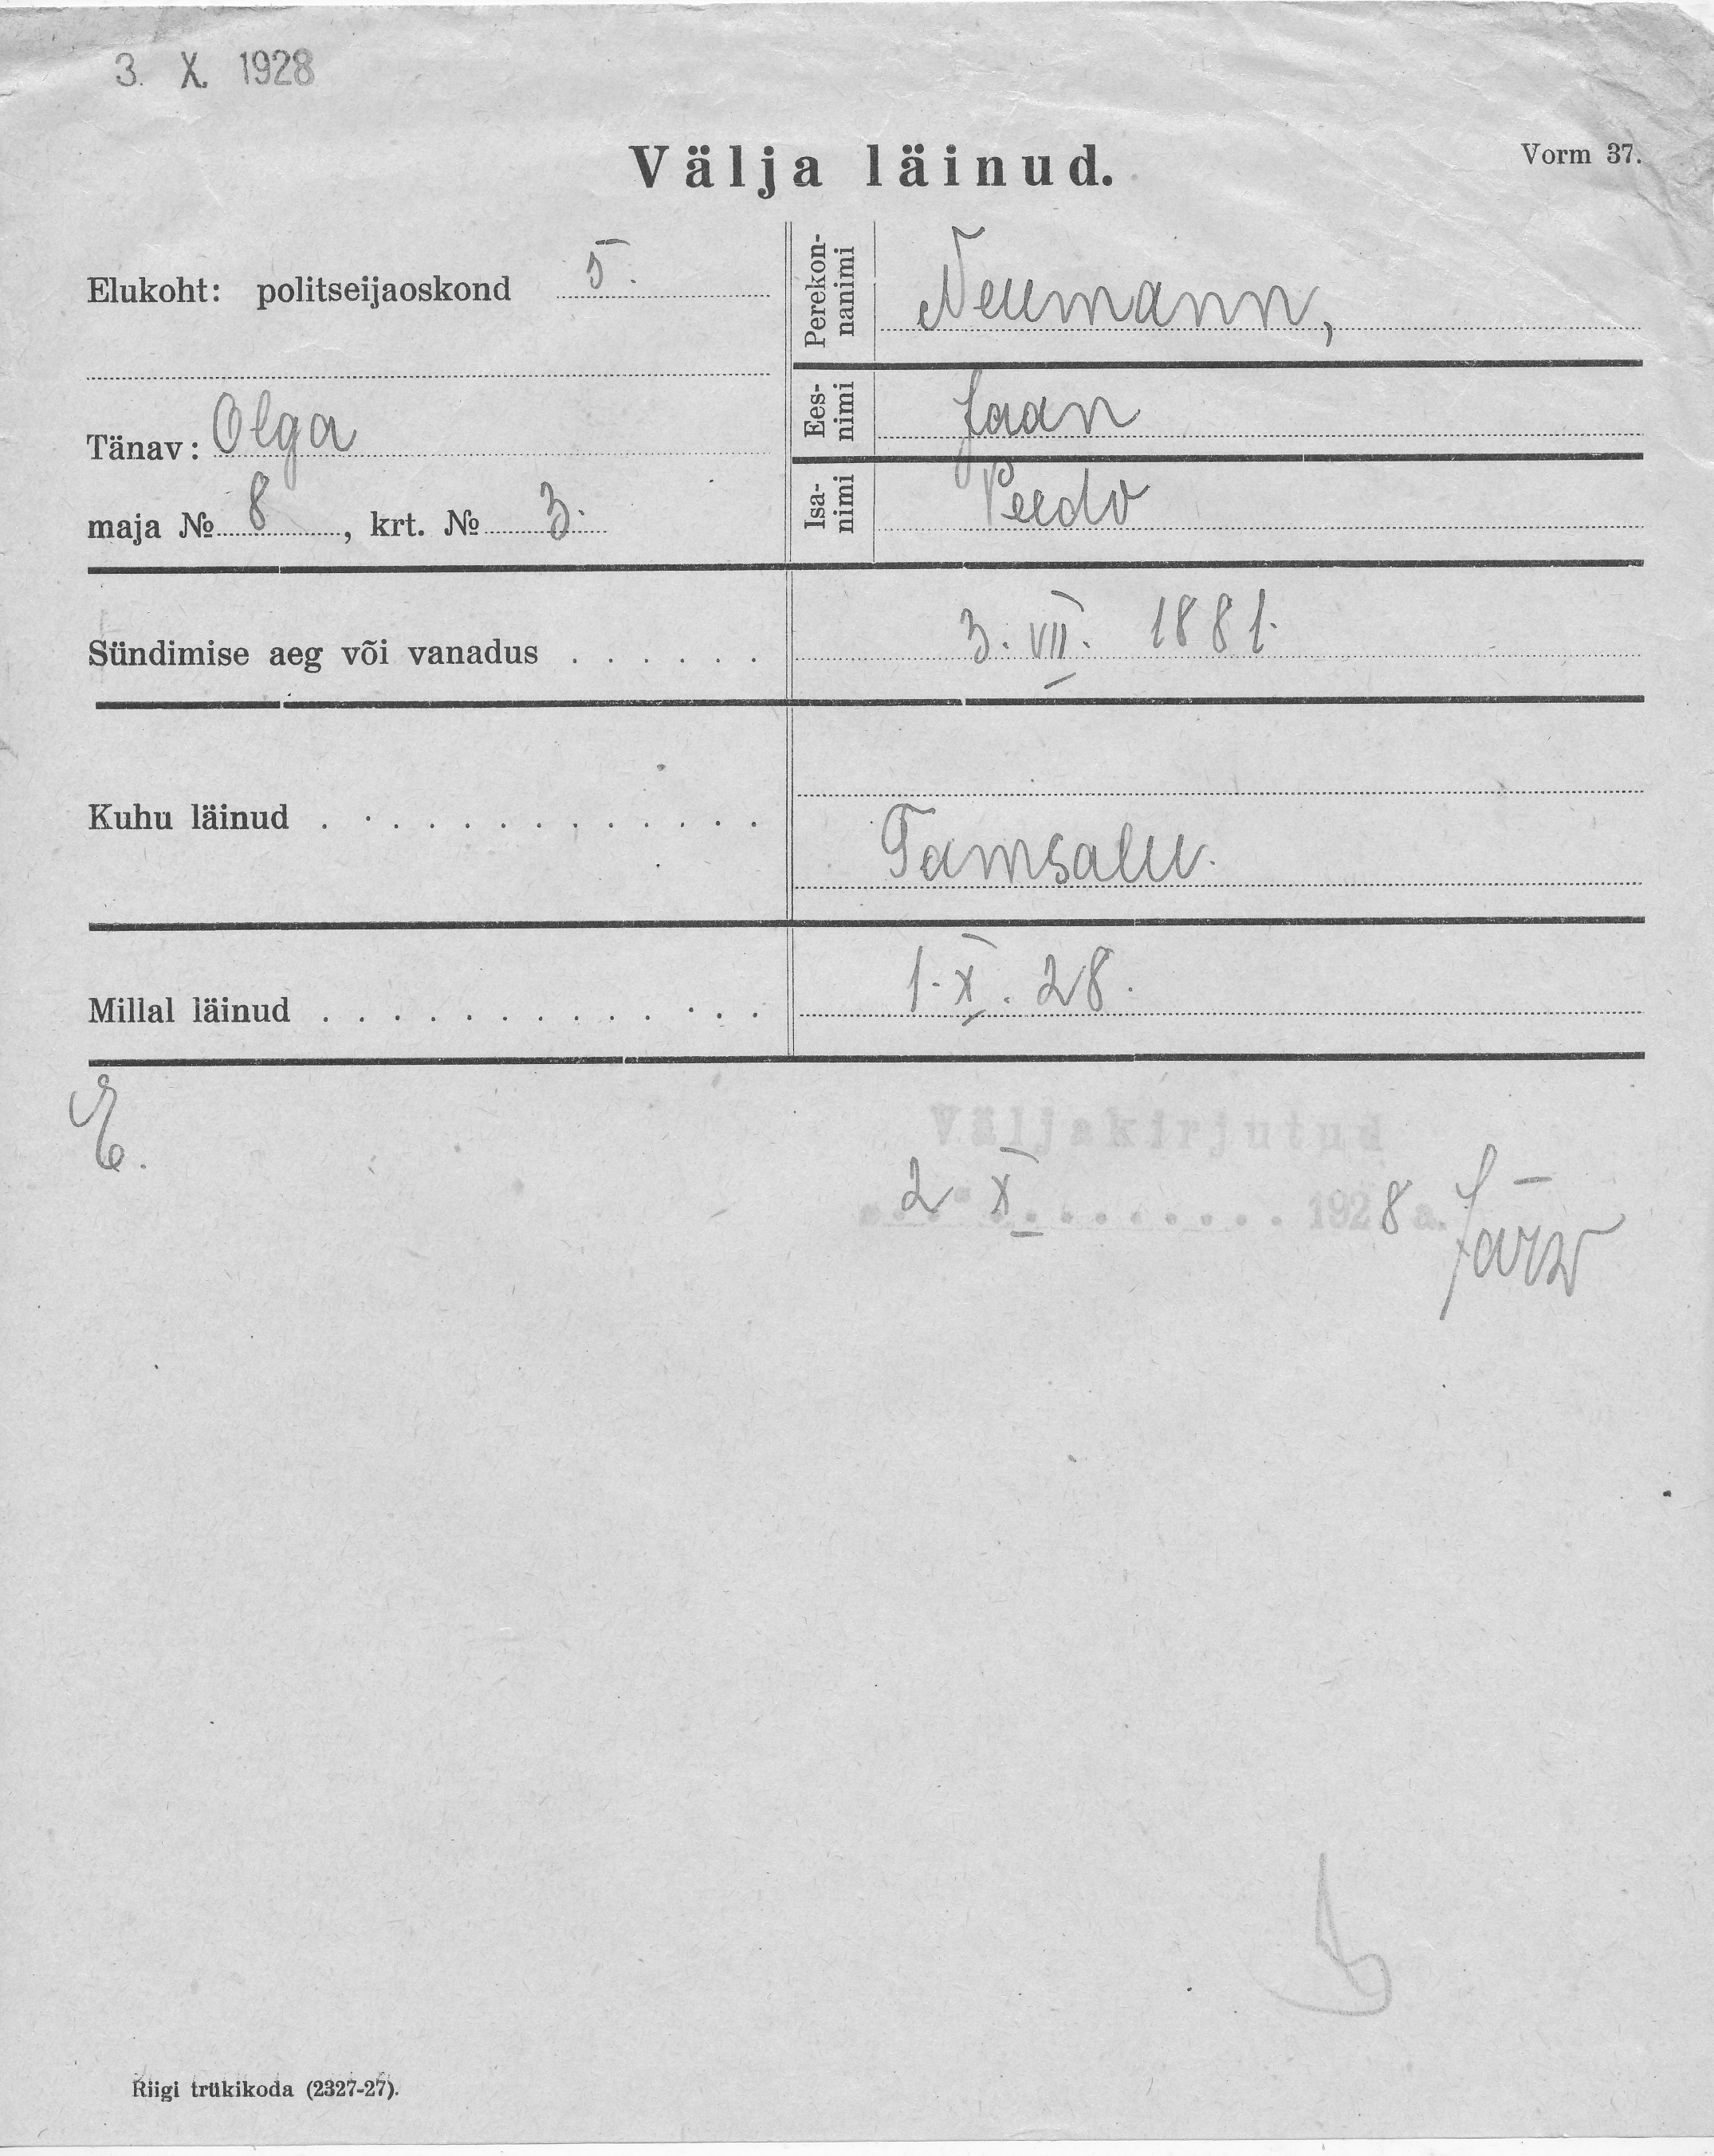 3. X. 1928
Välja läinud.
Vorm 37.
Elukoht: politseijaoskond 5.
Tänav: Olga
maja № 8, krt. № 3.
Perekon-
nanimi
Neumann,
Ees-
nimi
Jaan
Isa-
nimi
Peedo
Sündimise aeg või vanadus . . . . . . 3. VII. 1881.
Kuhu läinud . . . . . . . . . . . . . Tamsalu.
Millal läinud . . . . . . . . . . . . . 1. X. 28.
E.
Väljakirjutud
2 X . . . . . . . . . 1928 a. Järw
Riigi trükikoda (2327-27).